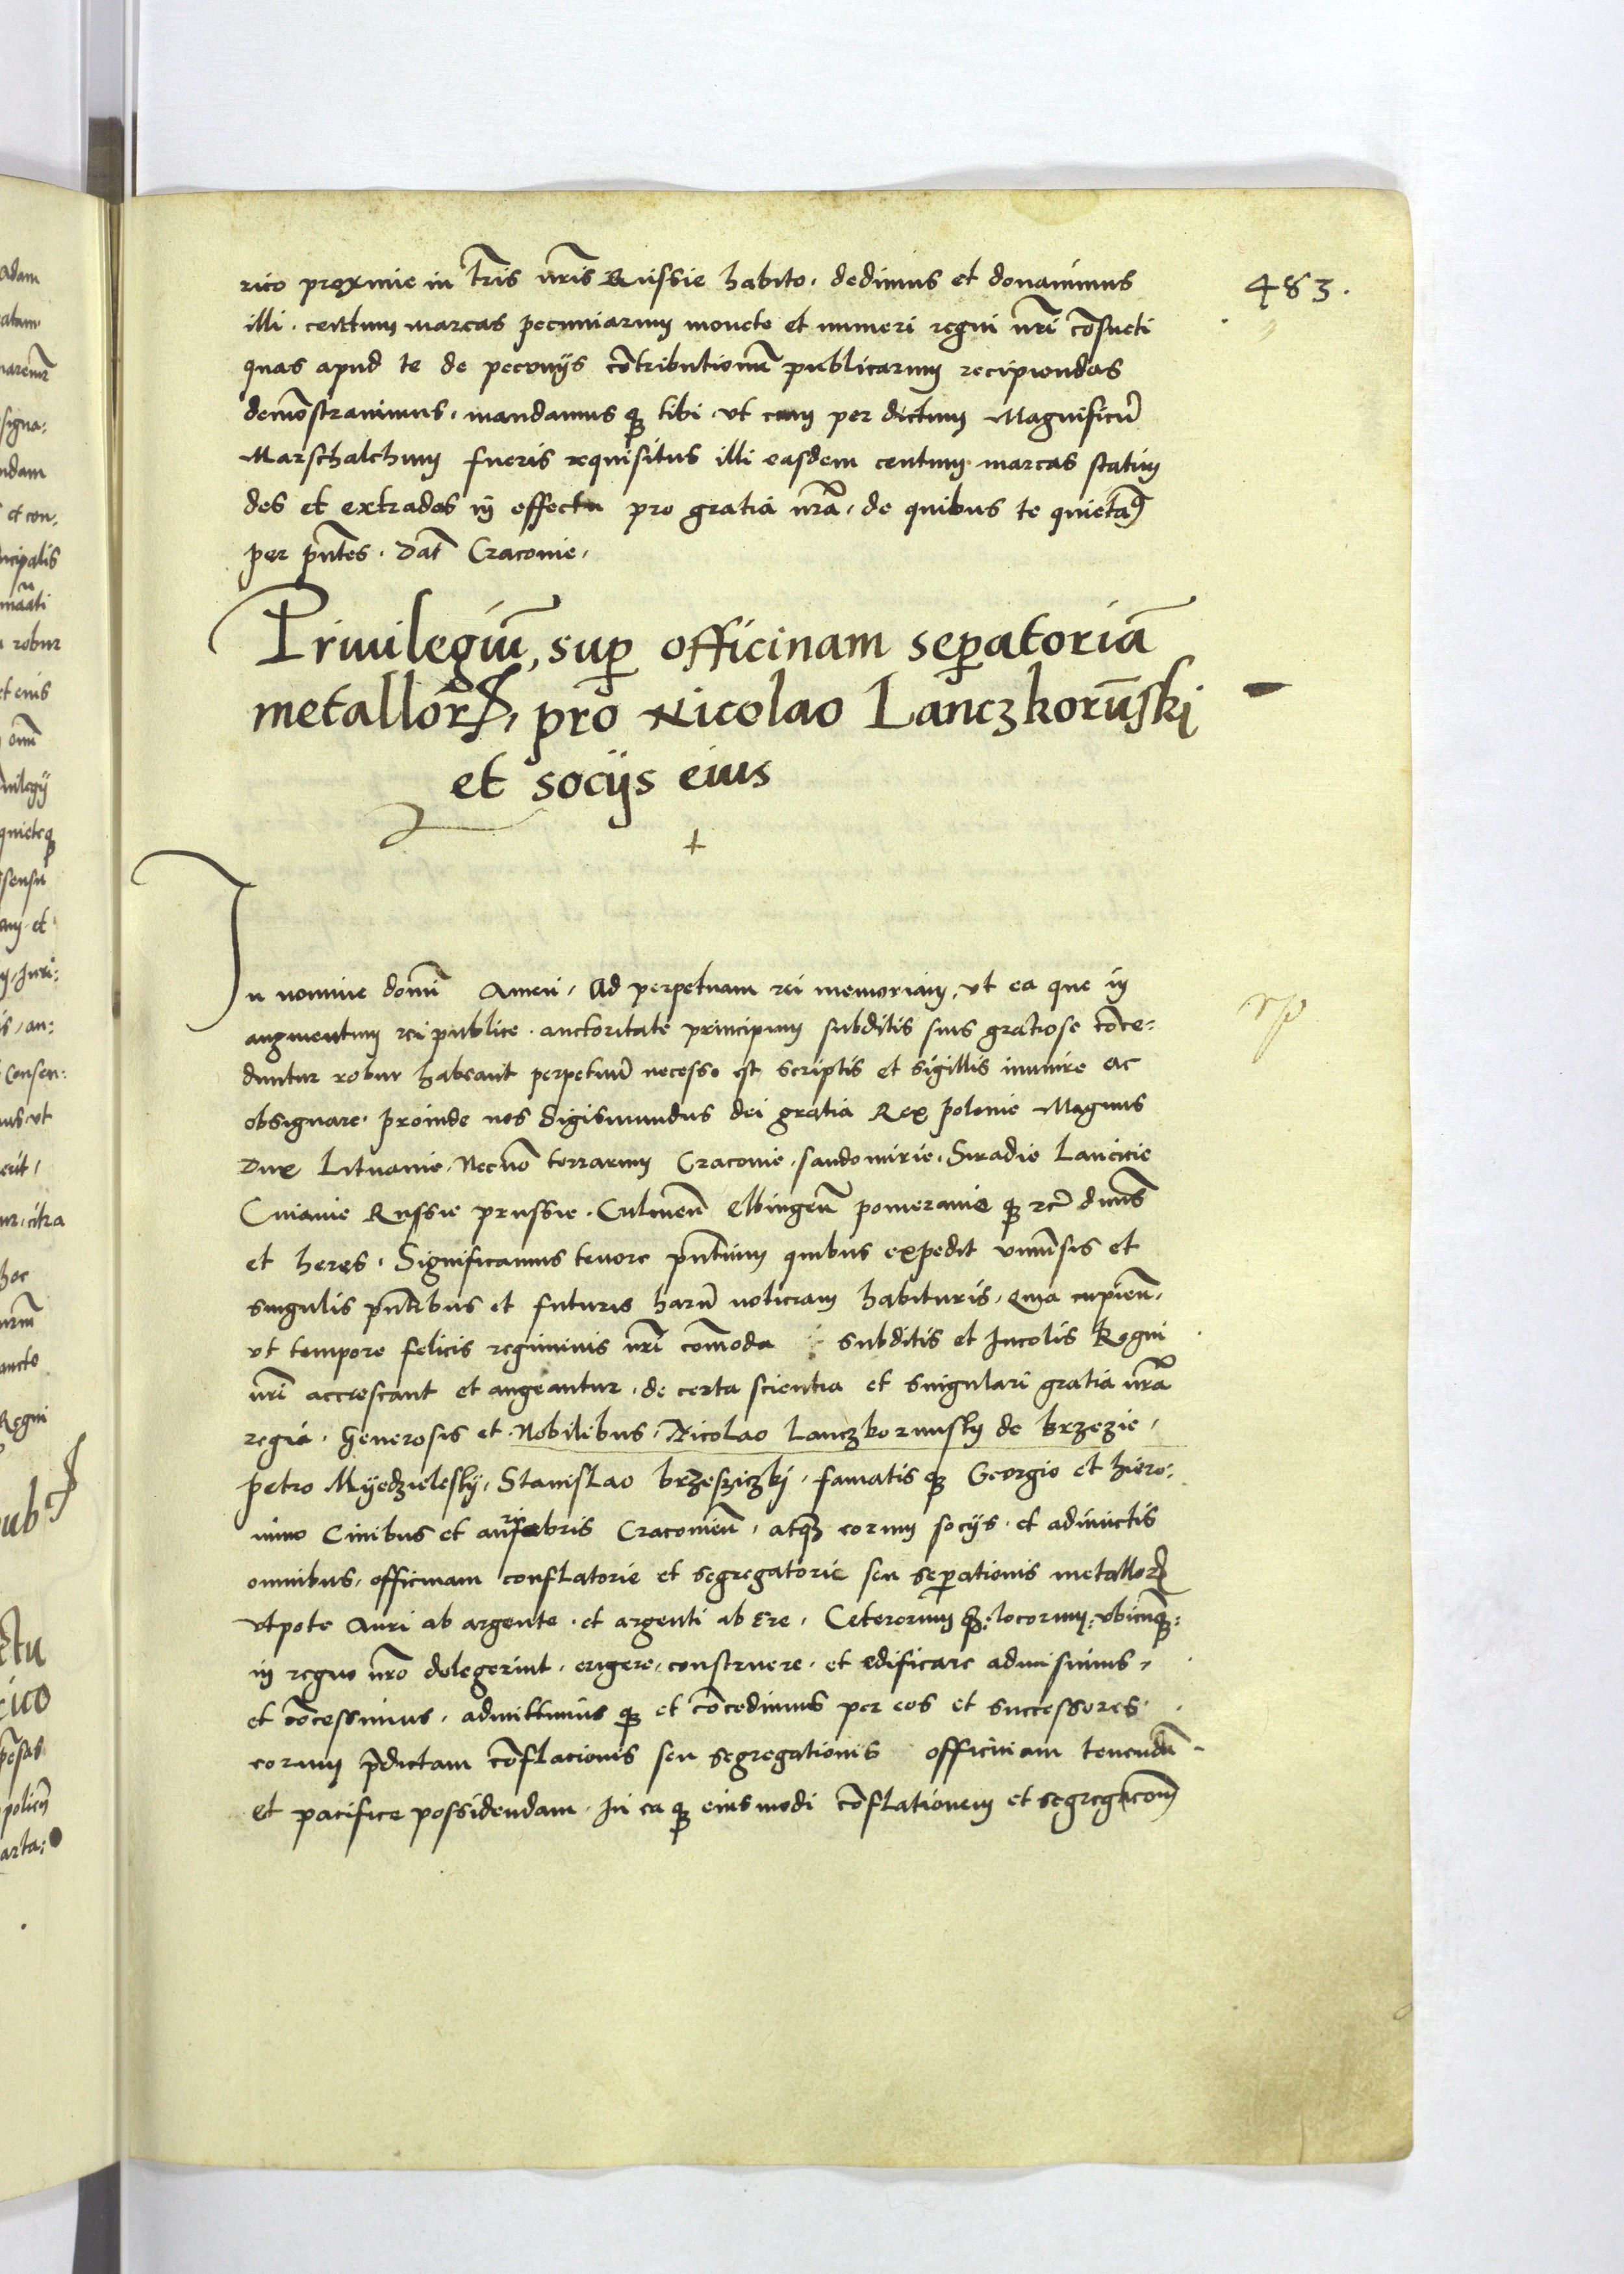 483.
rico proxime in tr̃is nr̃is Russie habito. dedimus et donauimus
illi. centum marcas pecuniarum monete et numeri regni nr̃i cõsueti
quas apud te de pecunijs cõtributionũ publicarum recipiendas
demõstrauimus. mandamus qȝ tibi vt cum per dictum Magnificũ
Marschalchum fueris requisitus illi easdem centum marcas statim
des et extrades in effectu pro gratia nr̃a. de quibus te quietam̃
per pñtes. Dat̃ Cracouie.
Priuilegiũ, sup officinam sepatoriã
metallorꝝ, pro Nicolao Lanczkorũski
et socijs eius
In nomine domĩ Amen. Ad perpetuam rei memoriam, vt ea que in
augmentum rei publice. auctoritate principum subditis suis gratiose cõce-
duntur robur habeant perpetuũ necesse est scriptis et sigillis munire ac
obsignare. proinde nos Sigismundus dei gratia Rex polonie Magnus
Dux Lituanie. Necnõ terrarum Cracouie. sandomirie. Siradie Lancicie
Cuiauie Russie prussie. Culmeñ Elbingeñ pomeranie qȝ rc̃ dñus
et heres. Significamus tenore pñtium quibus expedit vniuẽsis et
singulis pñtibus et futuris harũ noticiam habituris. Quia cupieñ.
vt tempore felicis regiminis nr̃i cõmoda subditis et Incolis Regni
nr̃i accrescant et augeantur. de certa scientia et singulari gratia nr̃a
regia. Generosis et Nobilibus. Nicolao Lanczkorunsky de Brzezie.
petro Myedzielesky. Stanislao brzesziczki. famatis qȝ Georgio et hiero:
nimo Ciuibus et aurifabris Cracouieñ. atqȝ eorum socijs. et adiunctis
omnibus. officinam conflatorie et segregatorie seu sepationis metallorꝝ
vtpote Auri ab argento. et argenti ab ere. Ceterorum qȝ: locorum: vbicũqȝ:
in regno nr̃o delegerint. erigere. construere. et edificare admisimus.
et cõcessimus. admittimus qȝ et cõcedimus per eos et successores
eorum p̃dictam cõflacionis seu segregationis officinam tenendã
et pacifice possidendam. In ea qȝ eiusmodi cõflationem et segregacõem